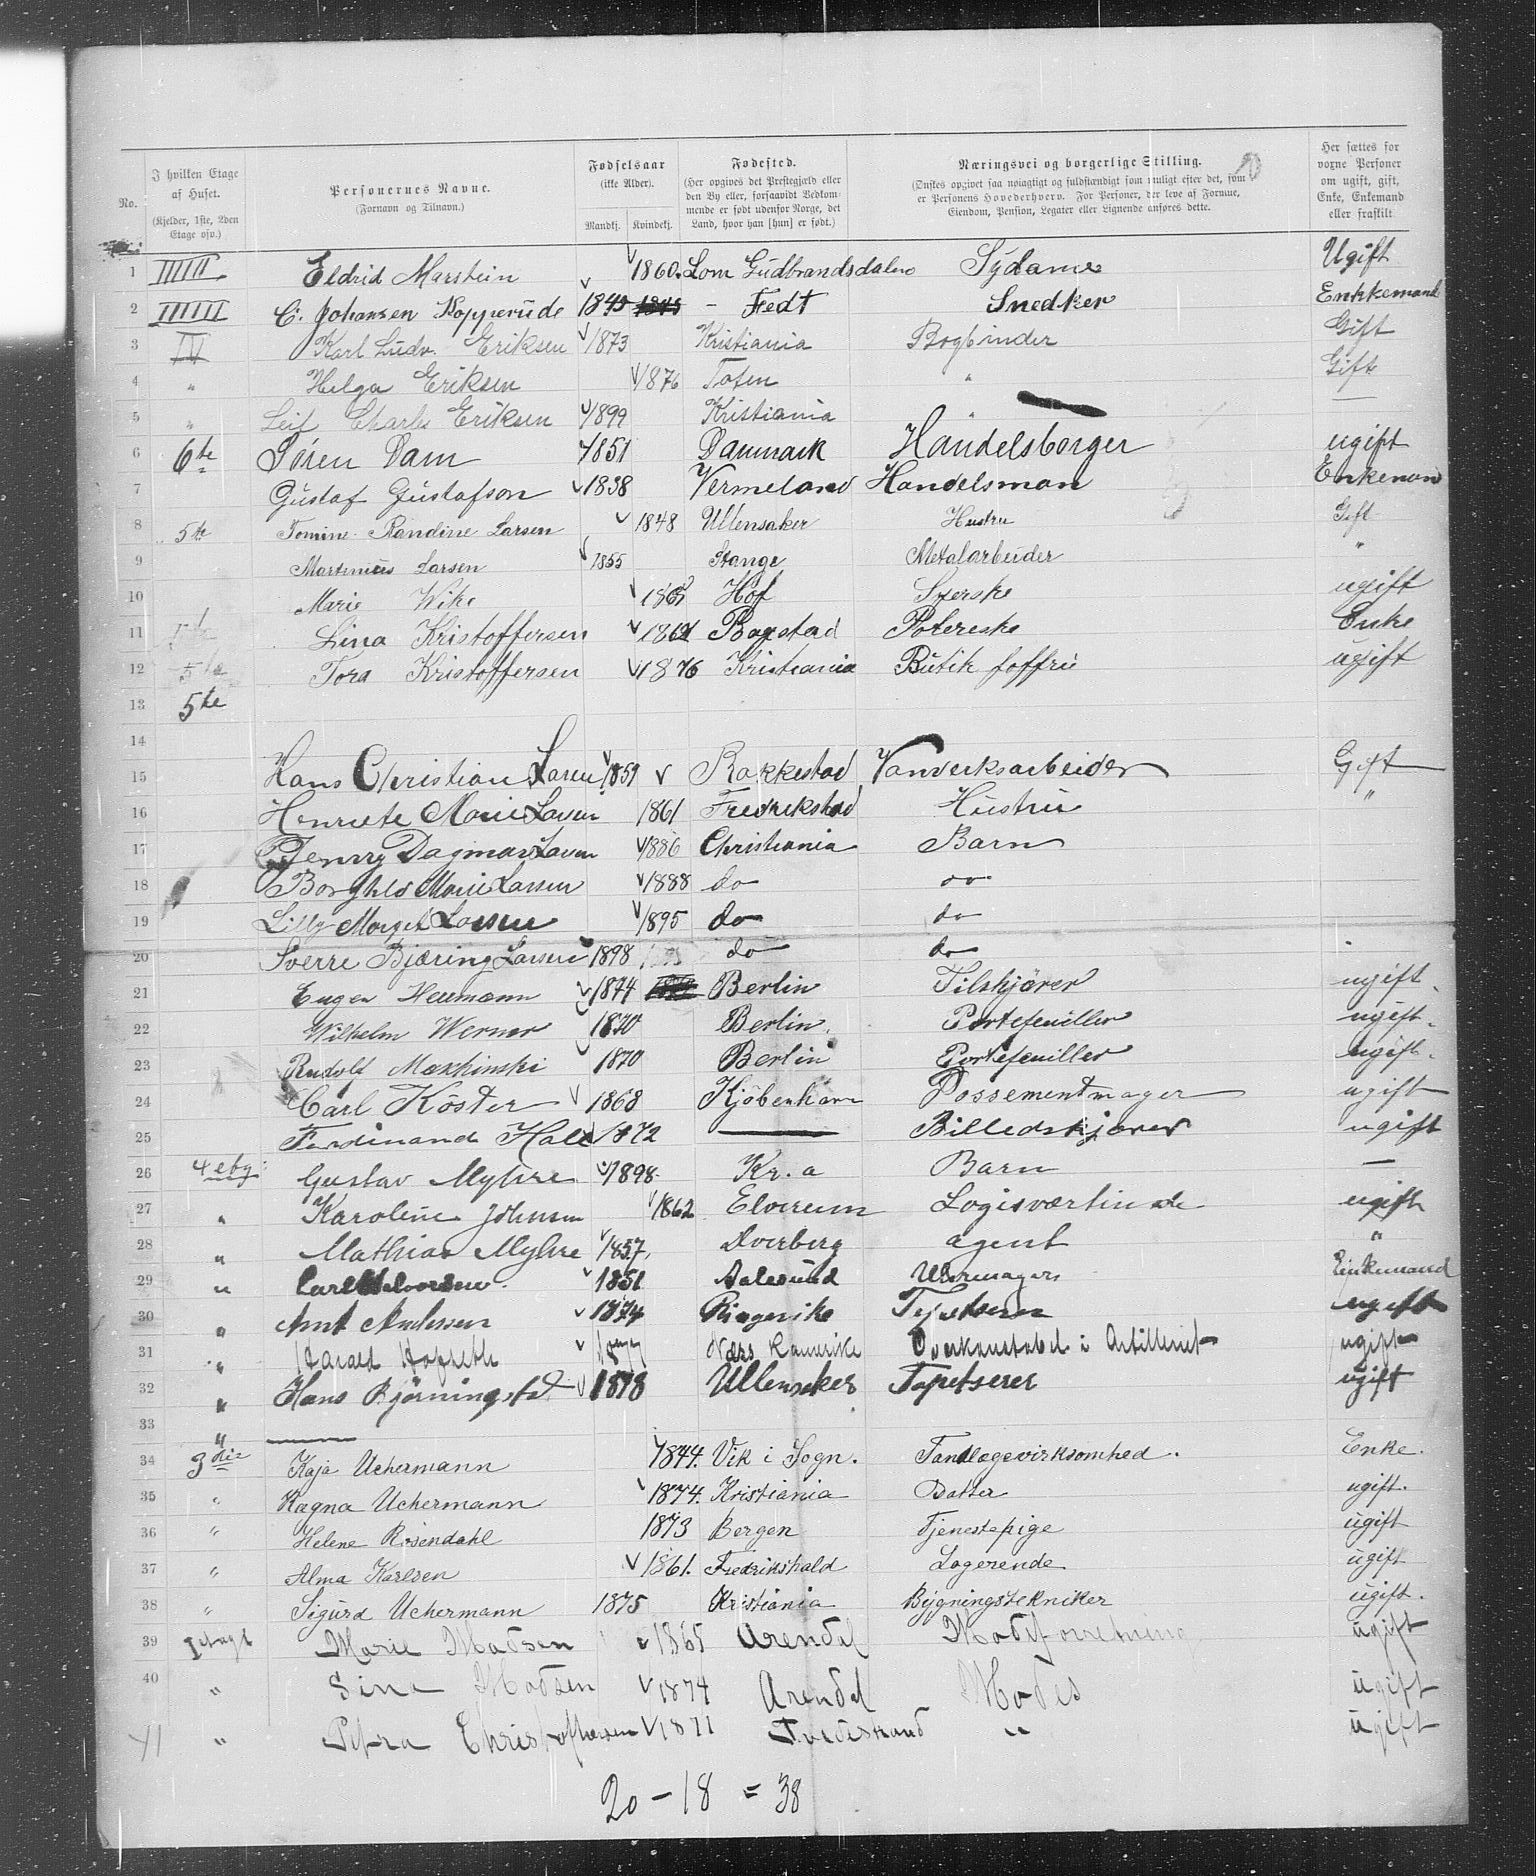 No. | I hvilken Etage af Huset. (Kjelder, 1ste, 2den Etage osv.) | Personernes Navne. (Fornavn og Tilnavn.) | Fødselsaar (ikke Alder). Mandkj. Kvindekj. | Fødested. (Her opgives det Prestegjæld eller den By eller, forsaavidt Vedkommende er født udenfor Norge, det Land, hvor han [hun] er født.) | Næringsvei og borgerlige Stilling. (Ønskes opgivet saa nøiagtigt og fuldstændigt som muligt efter det, som er Personens Hovederhverv. For Personer, der leve af Formue, Eiendom, Pension, Legater eller Lignende anføres dette.) | Her sættes for voxne Personer om ugift, gift, Enke, Enkemand eller fraskilt
1 IIIIII Eldrid Marstein 1860 Lom Gudbrandsdalen Sydame Ugift
2 IIIIII C. Johansen Kopperude 1845 Fedt Snedker Enkkemand
3 IV Karl Ludv. Eriksen 1873 Kristiania Bogbinder Gift
4 " Helga Eriksen 1876 Toten " Gift
5 " Leif Charles Eriksen 1899 Kristiania " —
6 6te Sören Dam 1851 Danmark Handelsborger ugift
7 Gustaf Gustafson 1838 Vermeland Handelsman Enkeman
8 5te Tomine Randine Larsen 1848 Ullensaker Hustru Gift
9 Martinius Larsen 1855 Stange Metalarbeider "
10 Marie Wike Hof Syerske ugift
11 Lina Kristoffersen Bogstad Polereske Enke
12 5te Tora Kristoffersen 1876 Kristiania Butik foffru ugift
13 5te
14
15 Hans Christian Larsen 1859 Rakkestad Vanverksarbeider Gift
16 Henriete Marie Larsen 1861 Fredrikstad Hustru "
17 Jenny Dagmar Larsen 1886 Christiania Barn
18 Borghld Marie Larsen 1888 do do
19 Lilly Margit Larsen 1895 do do
20 Sverre Bjæring Larsen 1898 do do
21 Eugen Heumann 1874 Berlin Tilskjärer ugift.
22 Wilhelm Werner 1870 Berlin. Portefeuiller ugift.
23 Rudolf Maschinski 1870 Berlin Portefeuiller ugift.
24 Carl Köster 1868 Kjöbenhavn Possementmager ugift
25 Ferdinand Hall 1872 — Billedskjærer ugift
26 4 etg: Gustav Myhre 1898 Kr.a Barn —
27 " Karoline Johnsen 1862 Elverum Logisværtinde ugift
28 " Mathias Myhre 1857 Dverberg agent "
29 " Carl Halvorsen 1851 Aalesund Uhrmager Enkemand
30 " Arnt Andersen 1874 Ringerike Tapetserer ugift
31 " Harald Hofseth Næs Romerike Overkonstabel i Artilleriet ugift
32 " Hans Bjørningstad 1878 Ullensaker Tapetserer ugift
33 " —
34 3die Kaja Uchermann 1844. Vik i Sogn. Tandlægevirksomhed. Enke.
35 " Ragna Uchermann 1874. Kristiania Datter ugift.
36 " Helene Rosendahl 1873 Bergen Tjenestepige ugift
37 " Alma Karlsen 1861. Fredrikshald Logerende ugift
38 " Sigurd Uchermann 1875 Kristiania Bygningstekniker ugift.
39 1 etage Marie Madsen 1865 Arendal Modeforretning ugift
40 " Sina Madsen 1874 Arendal Modes ugift
41 " Petra Christoffersen 1871 Tvedestrand " ugift
20 – 18 = 38